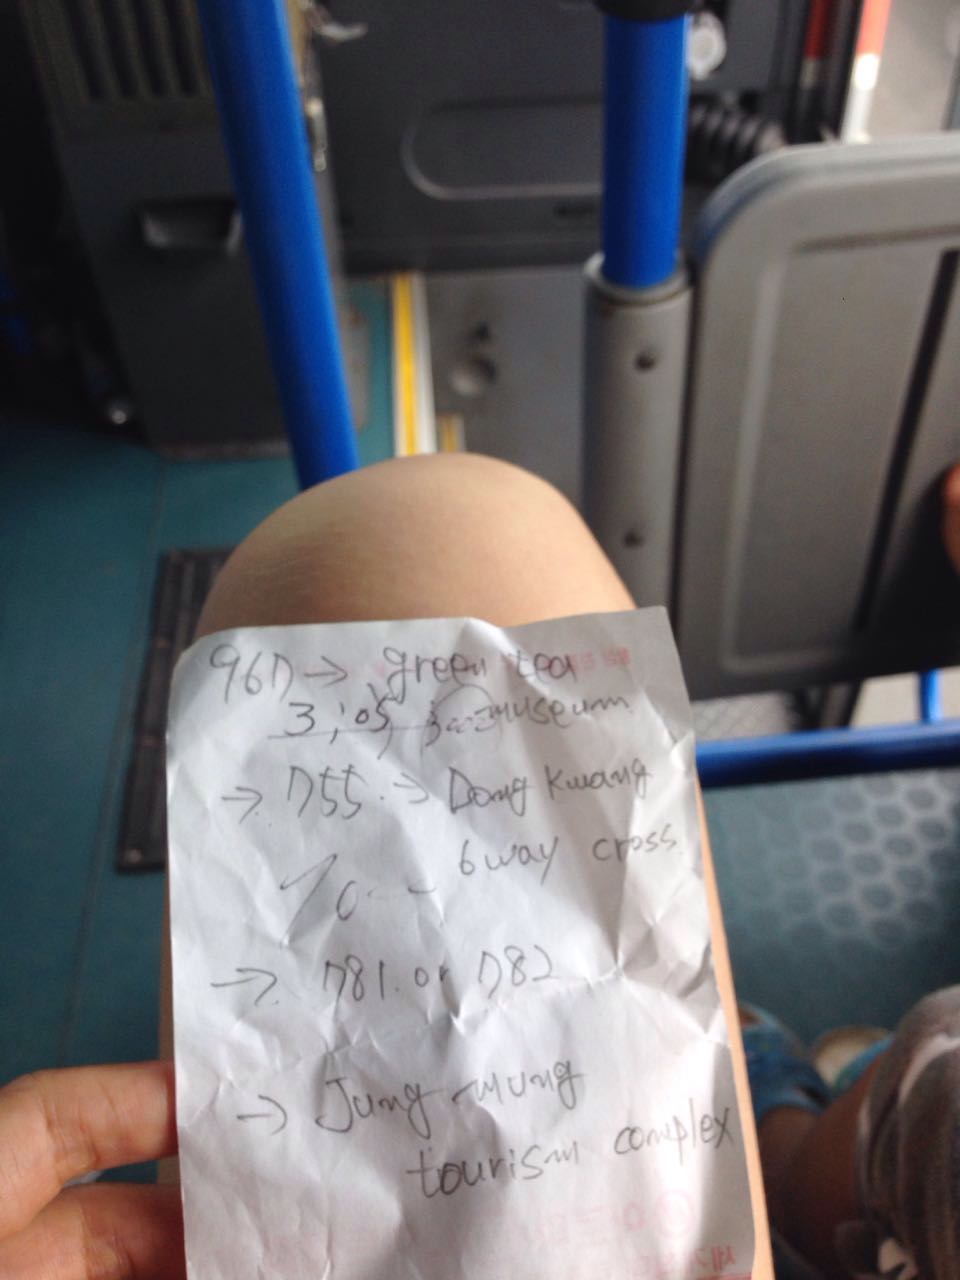 967 → green tea
3:05, museum
→ 755 → Dong kwang
6 way cross
→ 781 or 782
→ Jung mung
tourism complex